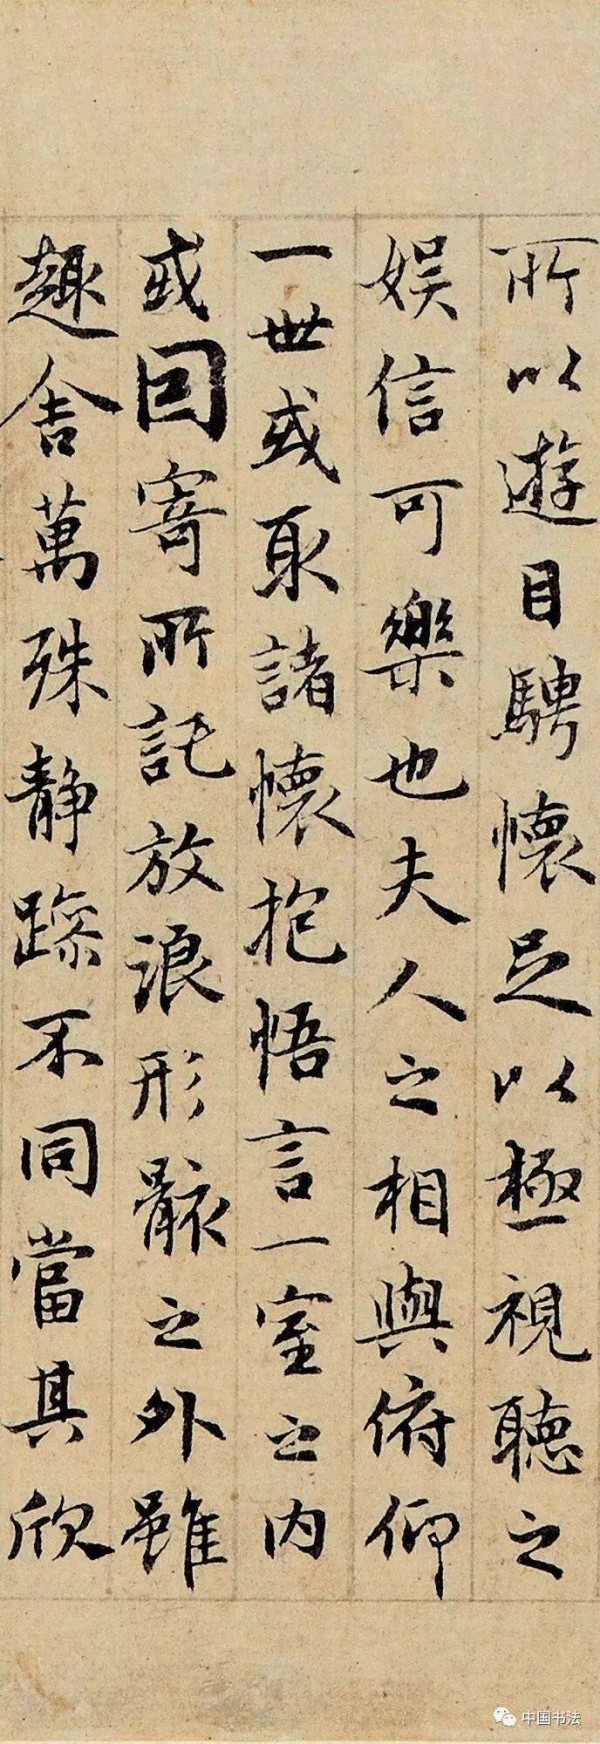 所以遊目騁懷足以極視聽之
娱信可樂也夫人之相與俯仰
一世或取諸懷抱悟言一室之内
或因寄所託放浪形骸之外雖
趣舍萬殊静躁不同當其欣
中国书法